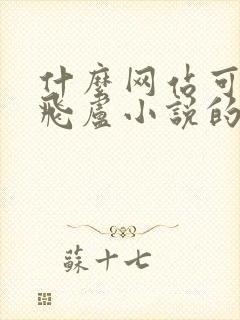 什麼网佔可
飛盧小說的
蘇十七